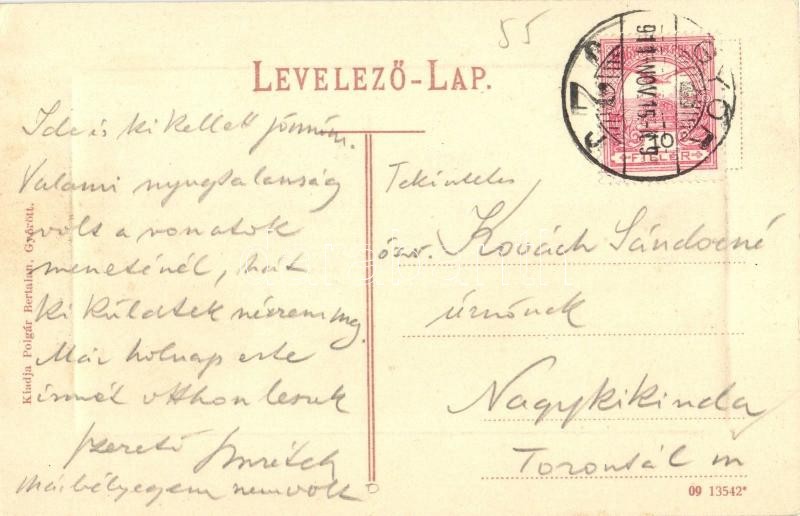 55
LEVELEZŐ-LAP.
GYŐR
911 NOV. 15
10
FILLÉR
Ide is ki kellett jönnöm.
Valami nyugtalanság
volt a vonatok
meneténél, hát
ki küldtek nézzem meg.
Már holnap este
ismét otthon leszek
szerető Imrétek
már bélyegem nem volt
Tekintetes
özv. Kovách Sándorné
úrnőnek
Nagykikinda
Torontál m
Kiadja Polgár Bertalan, Győrött.
09 13542*